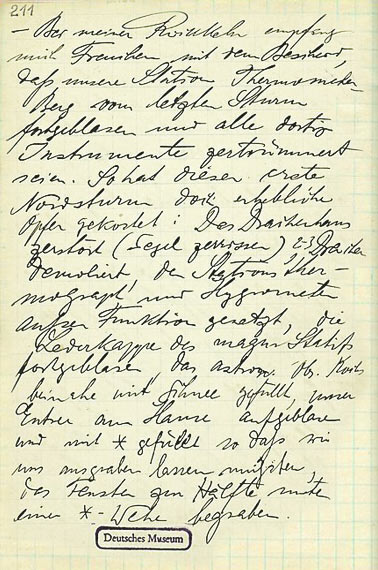 211
– Bei meiner Rückkehr empfing
mich Freuchen mit dem Bescheid,
daß unsere Station Thermometer
Berg vom letzten Sturm
fortgeblasen und alle dortig
Instrumente zertrümmert
seien. So hat dieser erste
Nordsturm doch erhebliche
Opfer gekostet: Das Drachenhaus
zerstört (Segel zerrissen), 2-3 Drachen
demoliert, der Stations Ther-
mograph und Hygrometer
außer Funktion gesetzt, die
Lederkappe des magn. Stativs
fortgeblasen, das astron. 
 mit Schnee gefüllt, unser
Entree am Hause aufgeblasen
und mit * gefüllt so daß wir
uns ausgraben lassen mußten,
das Fenster zur Hälfte unter
einer *-Wehe begraben.
Deutsches Museum